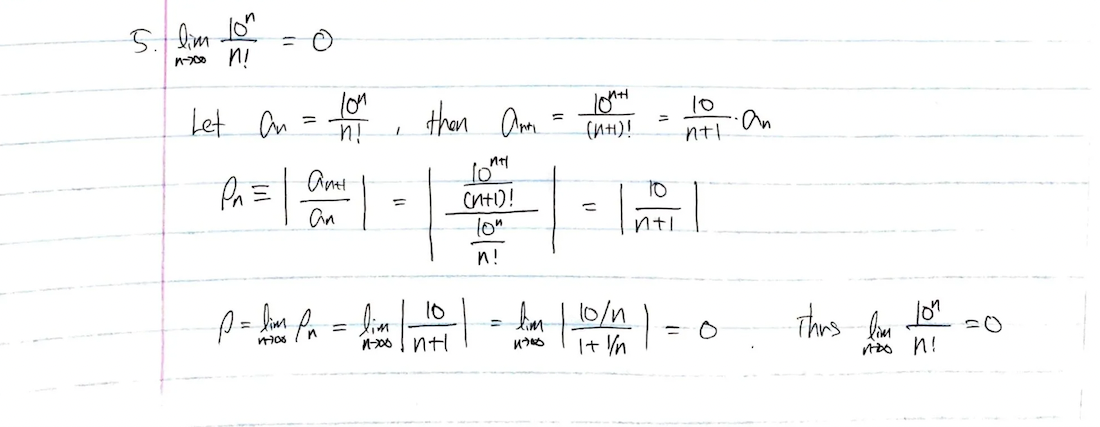 5. lim n→∞ 10^n / n! = 0
Let a_n = 10^n / n! , then a_{n+1} = 10^{n+1} / (n+1)! = 10 / (n+1) · a_n
ρ_n ≡ | a_{n+1} / a_n | = | (10^{n+1} / (n+1)!) / (10^n / n!) | = | 10 / (n+1) |
ρ = lim n→∞ ρ_n = lim n→∞ | 10 / (n+1) | = lim n→∞ | (10/n) / (1 + 1/n) | = 0 . Thus lim n→∞ 10^n / n! = 0